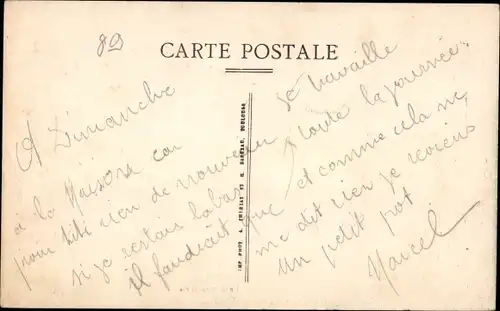 89
CARTE POSTALE
A Dimanche
à la Maison car
pour titi rien de nouveau
si je restais labas
il faudrait que
je travaille
toute la journée
et comme cela ne
me dit rien je reviens
un petit pot
Marcel
IMP. PHOT. A. ET H. TOULOUSE